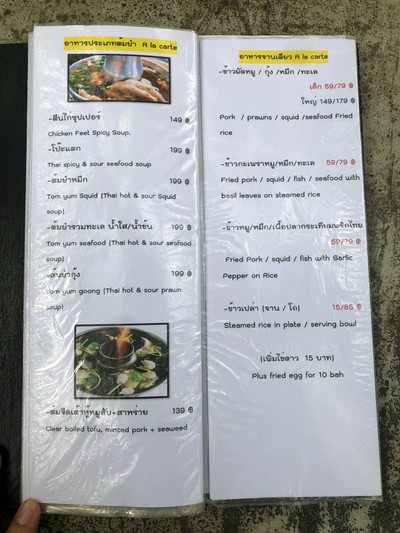 อาหารประเภทต้มยำ A la carte
-ตีนไก่ซุปเปอร์ 149 ฿
Chicken Feet Spicy Soup.
-โป๊ะแตก 199 ฿
Thai spicy & sour seafood soup
-ต้มยำหมึก 199 ฿
Tom yum Squid (Thai hot & sour Squid
soup)
-ต้มยำรวมทะเล น้ำใส/น้ำข้น 199 ฿
Tom yum seafood (Thai hot & sour seafood
soup)
-ต้มยำกุ้ง 199 ฿
Tom yum goong (Thai hot & sour prawn
soup)
-ต้มจืดเต้าหู้หมูสับ+สาหร่าย 139 ฿
Clear boiled tofu, minced pork + seaweed
อาหารจานเดียว A la carte
-ข้าวผัดหมู / กุ้ง /หมึก /ทะเล
เล็ก 59/79 ฿
ใหญ่ 149/179 ฿
Pork / prawns / squid /seafood Fried
rice
-ข้าวกะเพราหมู/หมึก/ทะเล 59/79 ฿
Fried pork / squid / fish / seafood with
basil leaves on steamed rice
-ข้าวหมู/หมึก/เนื้อปลากระเทียมพริกไทย
59/79 ฿
Fried Pork / squid / fish with Garlic
Pepper on Rice
-ข้าวเปล่า (จาน / โถ) 15/65 ฿
Steamed rice in plate / serving bowl
(เพิ่มไข่ดาว 15 บาท)
Plus fried egg for 10 bah